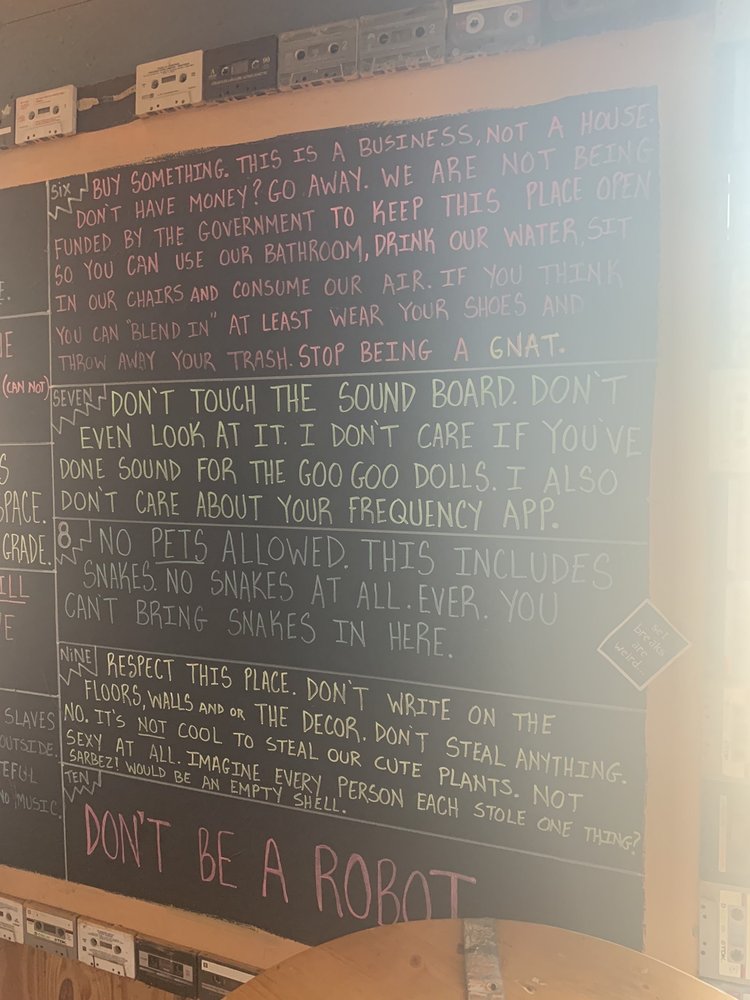 SIX BUY SOMETHING. THIS IS A BUSINESS, NOT A HOUSE.
DON'T HAVE MONEY? GO AWAY. WE ARE NOT BEING
FUNDED BY THE GOVERNMENT TO KEEP THIS PLACE OPEN
SO YOU CAN USE OUR BATHROOM, DRINK OUR WATER, SIT
IN OUR CHAIRS AND CONSUME OUR AIR. IF YOU THINK
YOU CAN "BLEND IN" AT LEAST WEAR YOUR SHOES AND
THROW AWAY YOUR TRASH. STOP BEING A GNAT.
(CAN NOT)
SEVEN DON'T TOUCH THE SOUND BOARD. DON'T
EVEN LOOK AT IT. I DON'T CARE IF YOU'VE
DONE SOUND FOR THE GOO GOO DOLLS. I ALSO
DON'T CARE ABOUT YOUR FREQUENCY APP.
GRADE.
8 NO PETS ALLOWED. THIS INCLUDES
SNAKES. NO SNAKES AT ALL. EVER. YOU
CANT BRING SNAKES IN HERE.
set
breaks
are
weird...
NINE RESPECT THIS PLACE. DON'T WRITE ON THE
FLOORS, WALLS AND OR THE DECOR. DON'T STEAL ANYTHING.
NO. IT'S NOT COOL TO STEAL OUR CUTE PLANTS. NOT
SEXY AT ALL. IMAGINE EVERY PERSON EACH STOLE ONE THING?
SARBEZ! WOULD BE AN EMPTY SHELL.
SLAVES
OUTSIDE.
MUSIC.
TEN
DON'T BE A ROBOT